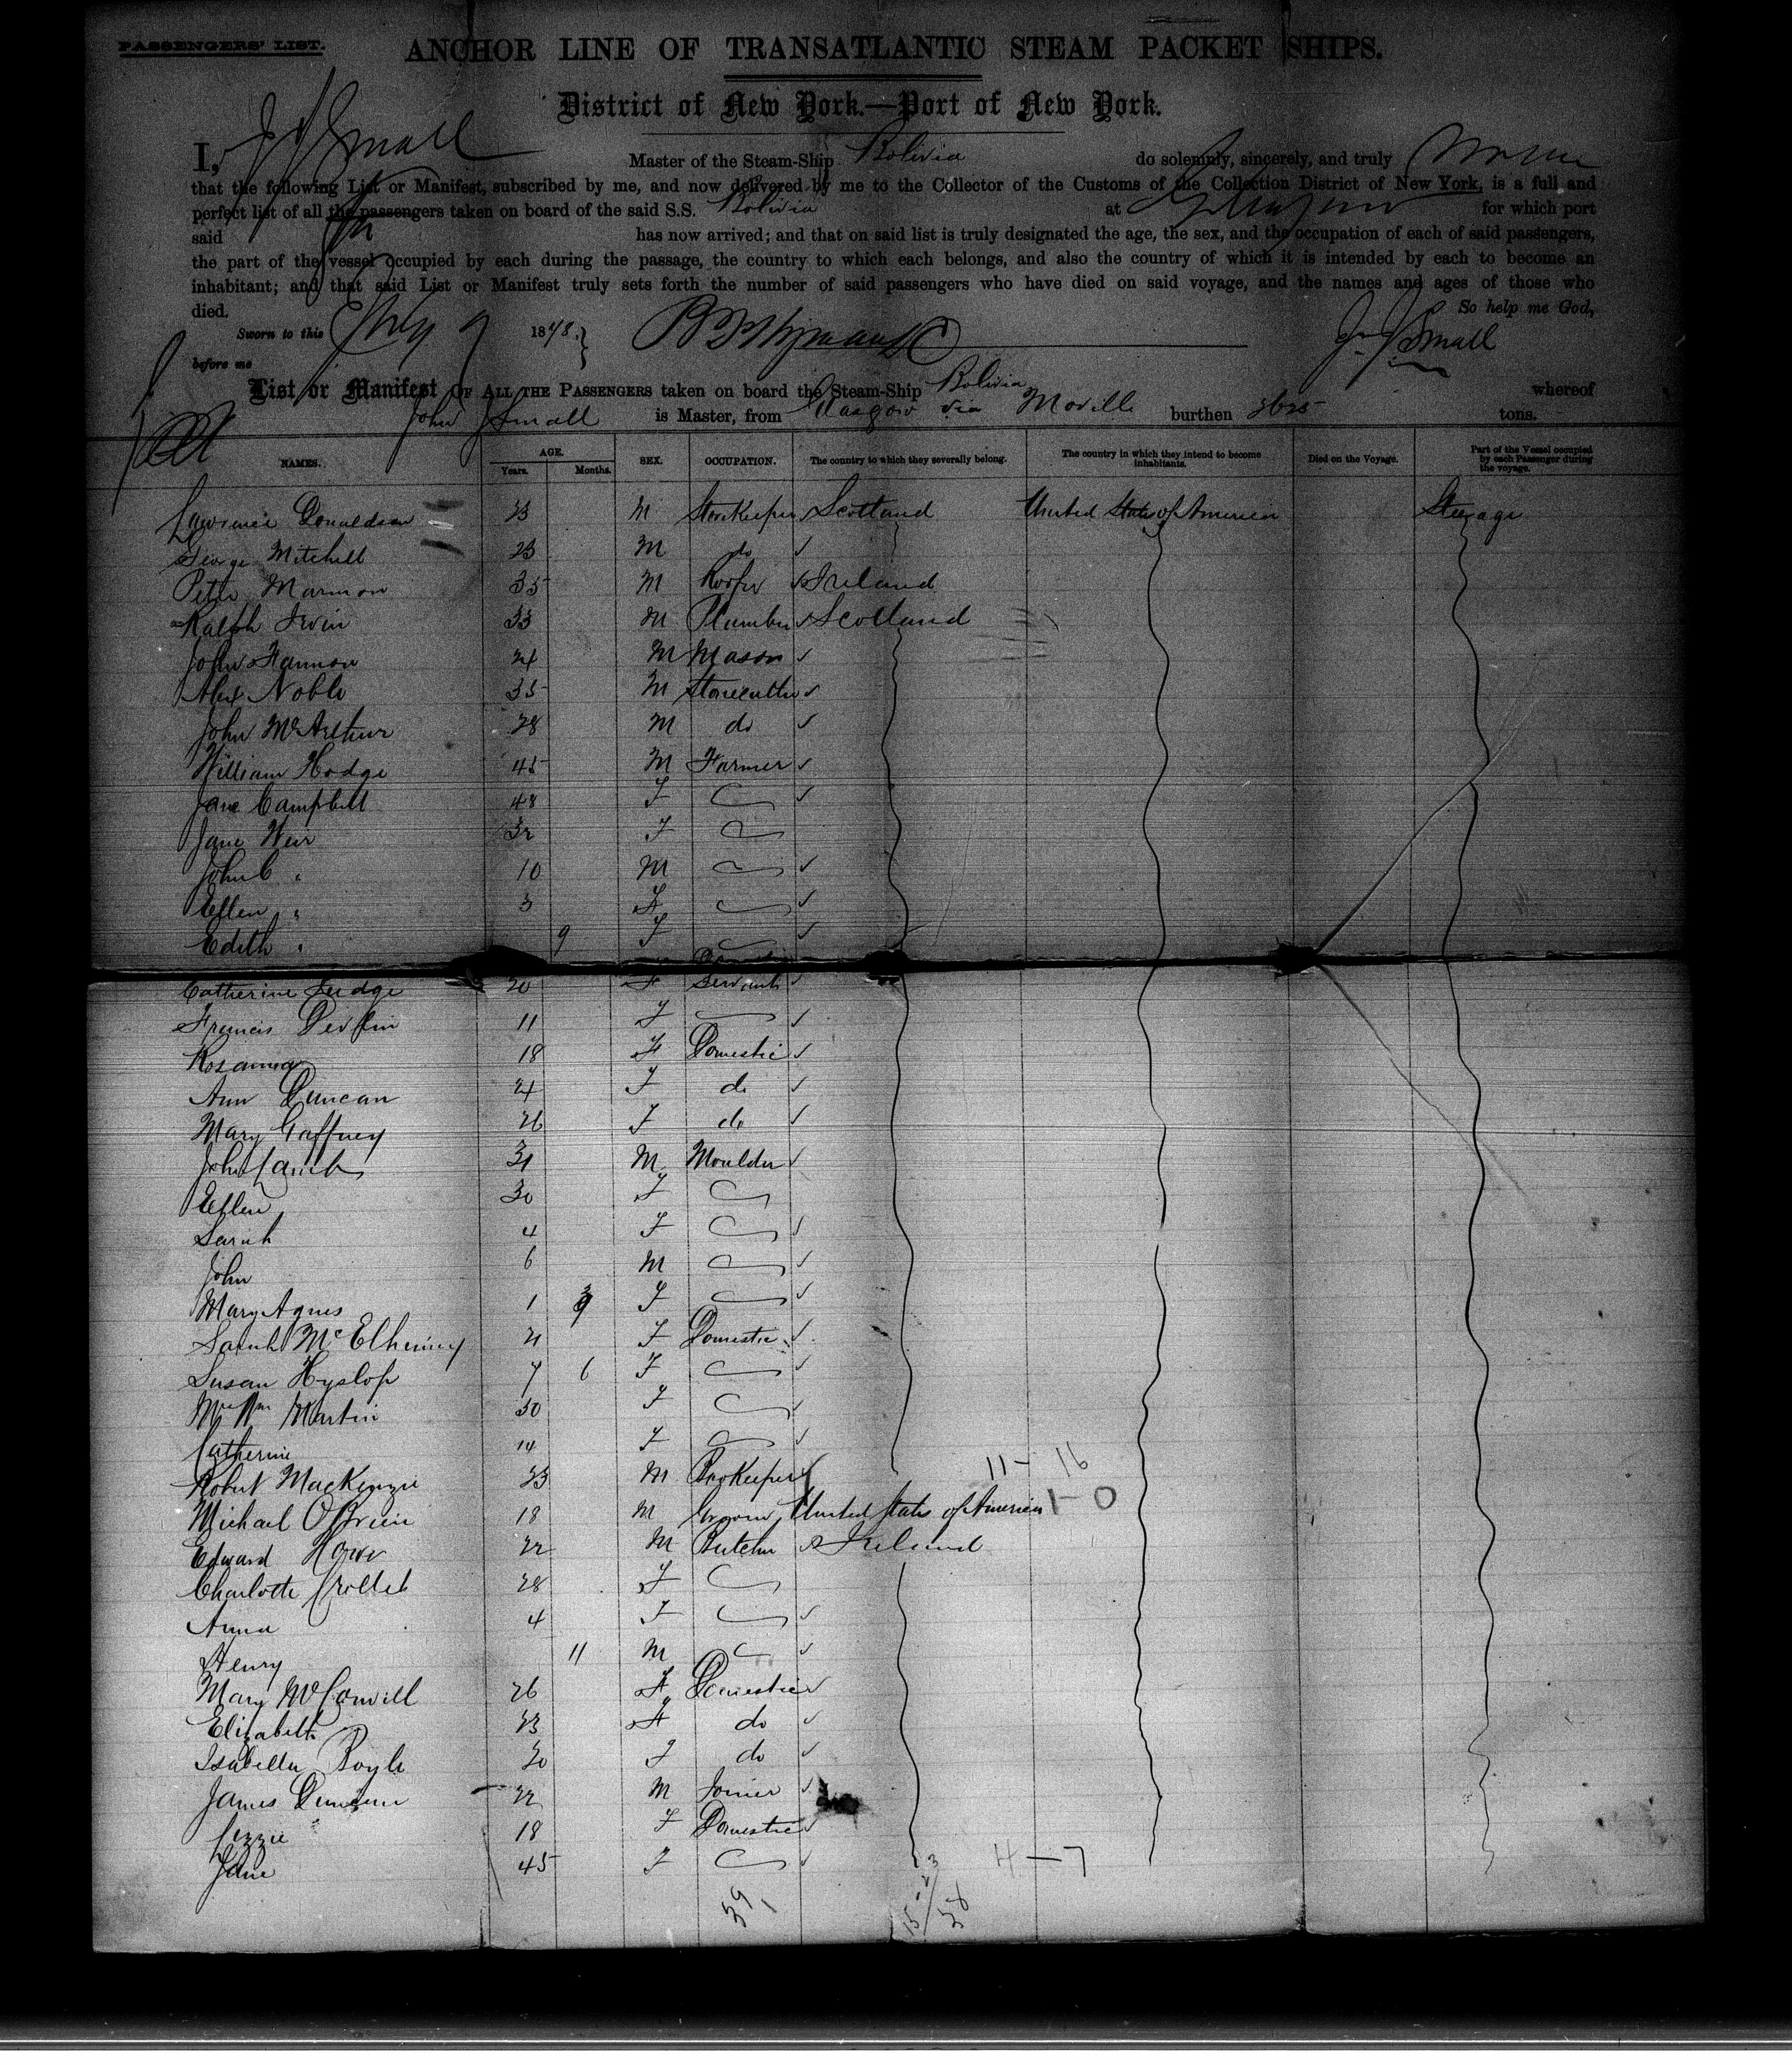 PASSENGERS' LIST.
ANCHOR LINE OF TRANSATLANTIC STEAM PACKET SHIPS.
District of New York.—Port of New York.
I, J J Small Master of the Steam-Ship Bolivia do solemnly, sincerely, and truly
that the following List or Manifest, subscribed by me, and now delivered by me to the Collector of the Customs of the Collection District of New York, is a full and
perfect list of all the passengers taken on board of the said S.S. Bolivia at Glasgow for which port
said has now arrived; and that on said list is truly designated the age, the sex, and the occupation of each of said passengers,
the part of the vessel occupied by each during the passage, the country to which each belongs, and also the country of which it is intended by each to become an
inhabitant; and that said List or Manifest truly sets forth the number of said passengers who have died on said voyage, and the names and ages of those who
died. So help me God,
Sworn to this 9 1878. Jn J Small
before me
List or Manifest OF ALL THE PASSENGERS taken on board the Steam-Ship Bolivia whereof
John J Small is Master, from Glasgow via Moville burthen 2625 tons.
NAMES. AGE. Years. Months. SEX. OCCUPATION. The country to which they severally belong. The country in which they intend to become inhabitants. Died on the Voyage. Part of the Vessel occupied by each Passenger during the voyage.
Lawrence Donaldson 23 M Storekeeper Scotland United States of America Steerage
George Mitchell 23 M do
Peter Marmon 35 M Roofer Ireland
Ralph Irvin 33 M Plumber Scotland
John Hannon 24 M Mason
Alex Noble 35 M Stonecutter
John McArthur 28 M do
William Hodge 45 M Farmer
Jane Campbell 48 F
Jane Weir 32 F
John C " 10 M
Ellen " 3 F
Edith " 9 F
Catherine Judge 20 F Servant
Francis Devlin 11 F
Rosanna 18 F Domestic
Ann Duncan 24 F do
Mary Gaffney 26 F do
John 31 M Moulder
Ellen 30 F
Sarah 4 F
John 6 M
Mary Agnes 1 F
Sarah McElhinney 21 F Domestic
Susan Hyslop 7 6 F
Mrs Wm Martin 50 F
Catherine 14 F
Robert MacKenzie 23 M 11- 16
Michael O'Brien 18 M Groom United States of America 1-0
Edward Howe 22 M Butcher Ireland
Charlotte 28 F
Anna 4 F
Henry 11 M
Mary McConvill 26 F Domestic
Elizabeth 23 F do
Isabella Boyle 20 F do
James Duncan 22 M Joiner
Lizzie 18 F Domestic
Jane 45 F 4-7
39 1 15-23 38